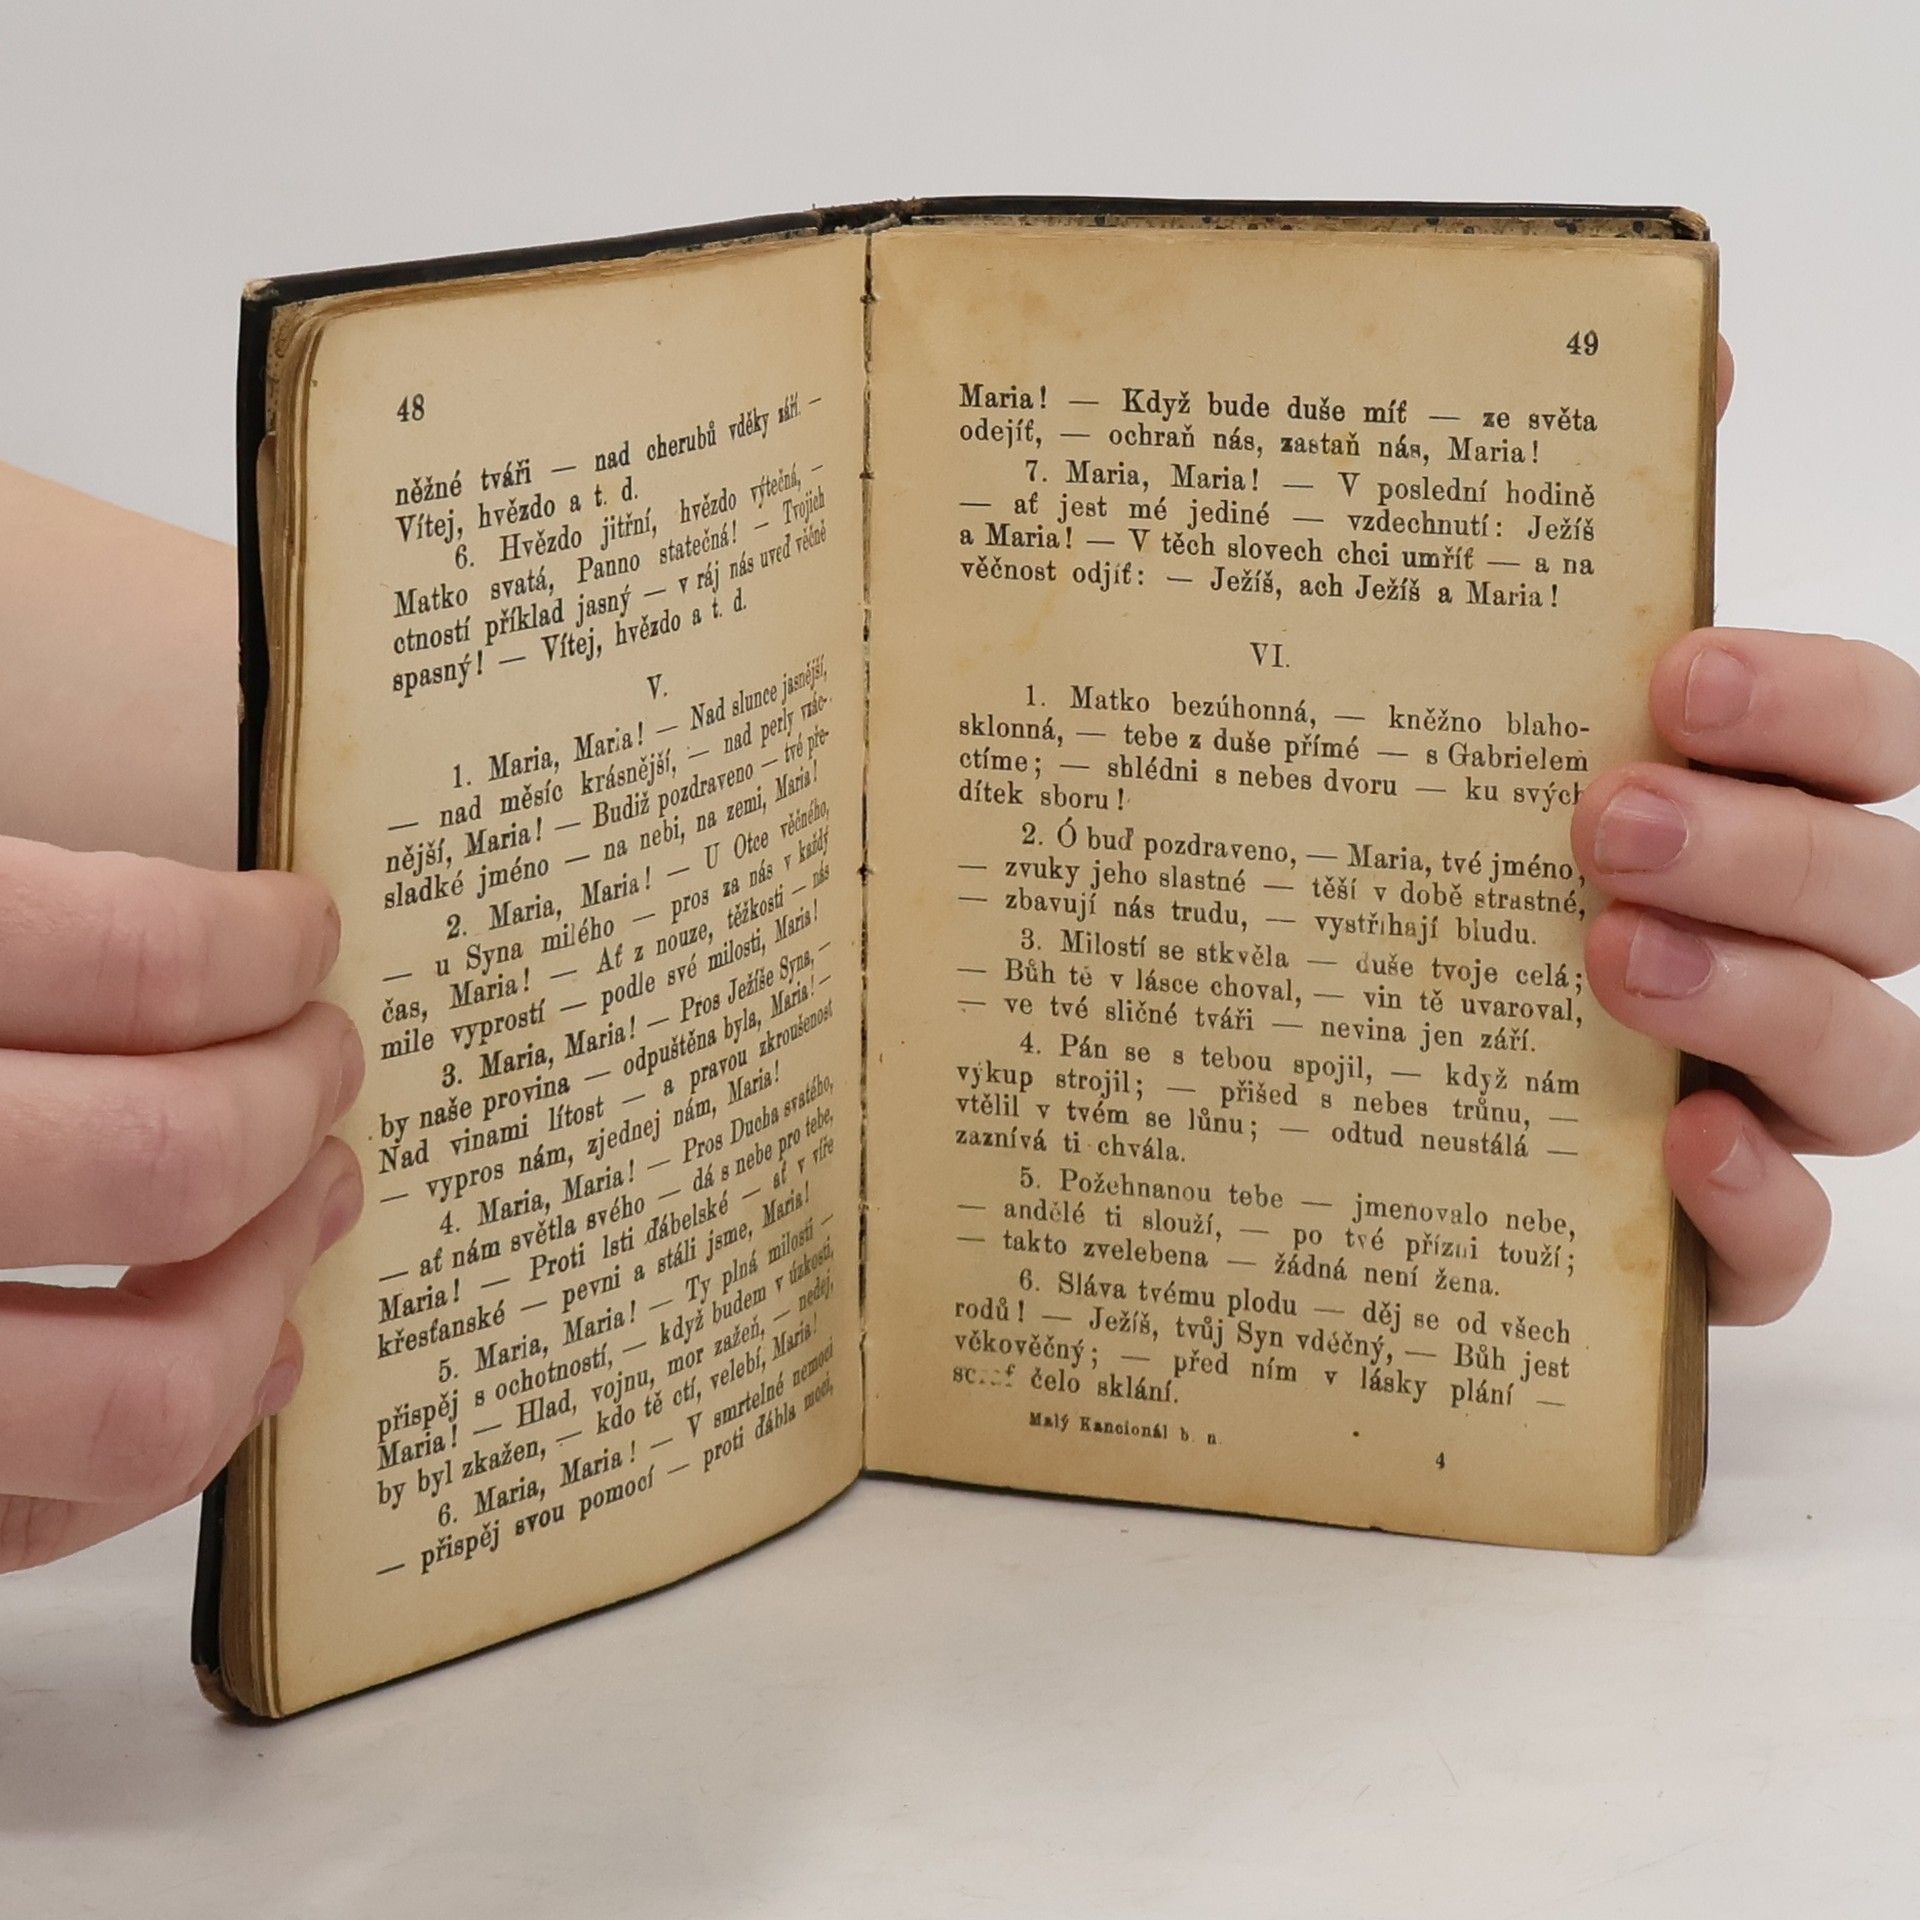 48
něžné tváři — nad cherubů vděky září. —
Vítej, hvězdo a t. d.
6. Hvězdo jitřní, hvězdo výtečná, —
Matko svatá, Panno statečná! — Tvojich
ctností příklad jasný — v ráj nás uveď věčně
spasný! — Vítej, hvězdo a t. d.
V.
1. Maria, Maria! — Nad slunce jasnější,
— nad měsíc krásnější, — nad perly vzác-
nější, Maria! — Budiž pozdraveno — tvé pře-
sladké jméno — na nebi, na zemi, Maria!
2. Maria, Maria! — U Otce věčného,
— u Syna milého — pros za nás v každý
čas, Maria! — Ať z nouze, těžkosti — nás
mile vyprostí — podle své milosti, Maria!
3. Maria, Maria! — Pros Ježíše Syna, —
by naše provina — odpuštěna byla, Maria! —
Nad vinami lítost — a pravou zkroušenost
— vypros nám, zjednej nám, Maria!
4. Maria, Maria! — Pros Ducha svatého,
— ať nám světla svého — dá s nebe pro tebe,
Maria! — Proti lsti ďábelské — ať v víře
křesťanské — pevni a stáli jsme, Maria!
5. Maria, Maria! — Ty plná milosti —
přispěj s ochotností, — když budem v úzkosti,
Maria! — Hlad, vojnu, mor zažeň, — nedej,
by byl zkažen, — kdo tě ctí, velebí, Maria!
6. Maria, Maria! — V smrtelné nemoci
— přispěj svou pomocí — proti ďábla moci,
49
Maria! — Když bude duše míť — ze světa
odejíť, — ochraň nás, zastaň nás, Maria!
7. Maria, Maria! — V poslední hodině
— ať jest mé jediné — vzdechnutí: Ježíš
a Maria! — V těch slovech chci umříť — a na
věčnost odjíť: — Ježíš, ach Ježíš a Maria!
VI.
1. Matko bezúhonná, — kněžno blaho-
sklonná, — tebe z duše přímé — s Gabrielem
ctíme; — shlédni s nebes dvoru — ku svých
dítek sboru!
2. Ó buď pozdraveno, — Maria, tvé jméno,
— zvuky jeho slastné — těší v době strastné,
— zbavují nás trudu, — vystříhají bludu.
3. Milostí se stkvěla — duše tvoje celá;
— Bůh tě v lásce choval, — vin tě uvaroval,
— ve tvé sličné tváři — nevina jen září.
4. Pán se s tebou spojil, — když nám
výkup strojil; — přišed s nebes trůnu, —
vtělil v tvém se lůnu; — odtud neustálá —
zaznívá ti chvála.
5. Požehnanou tebe — jmenovalo nebe,
— andělé ti slouží, — po tvé přízni touží;
— takto zvelebena — žádná není žena.
6. Sláva tvému plodu — děj se od všech
rodů! — Ježíš, tvůj Syn vděčný, — Bůh jest
věkověčný; — před ním v lásky plání —
seraf čelo sklání.
Malý Kancionál b. n.
4